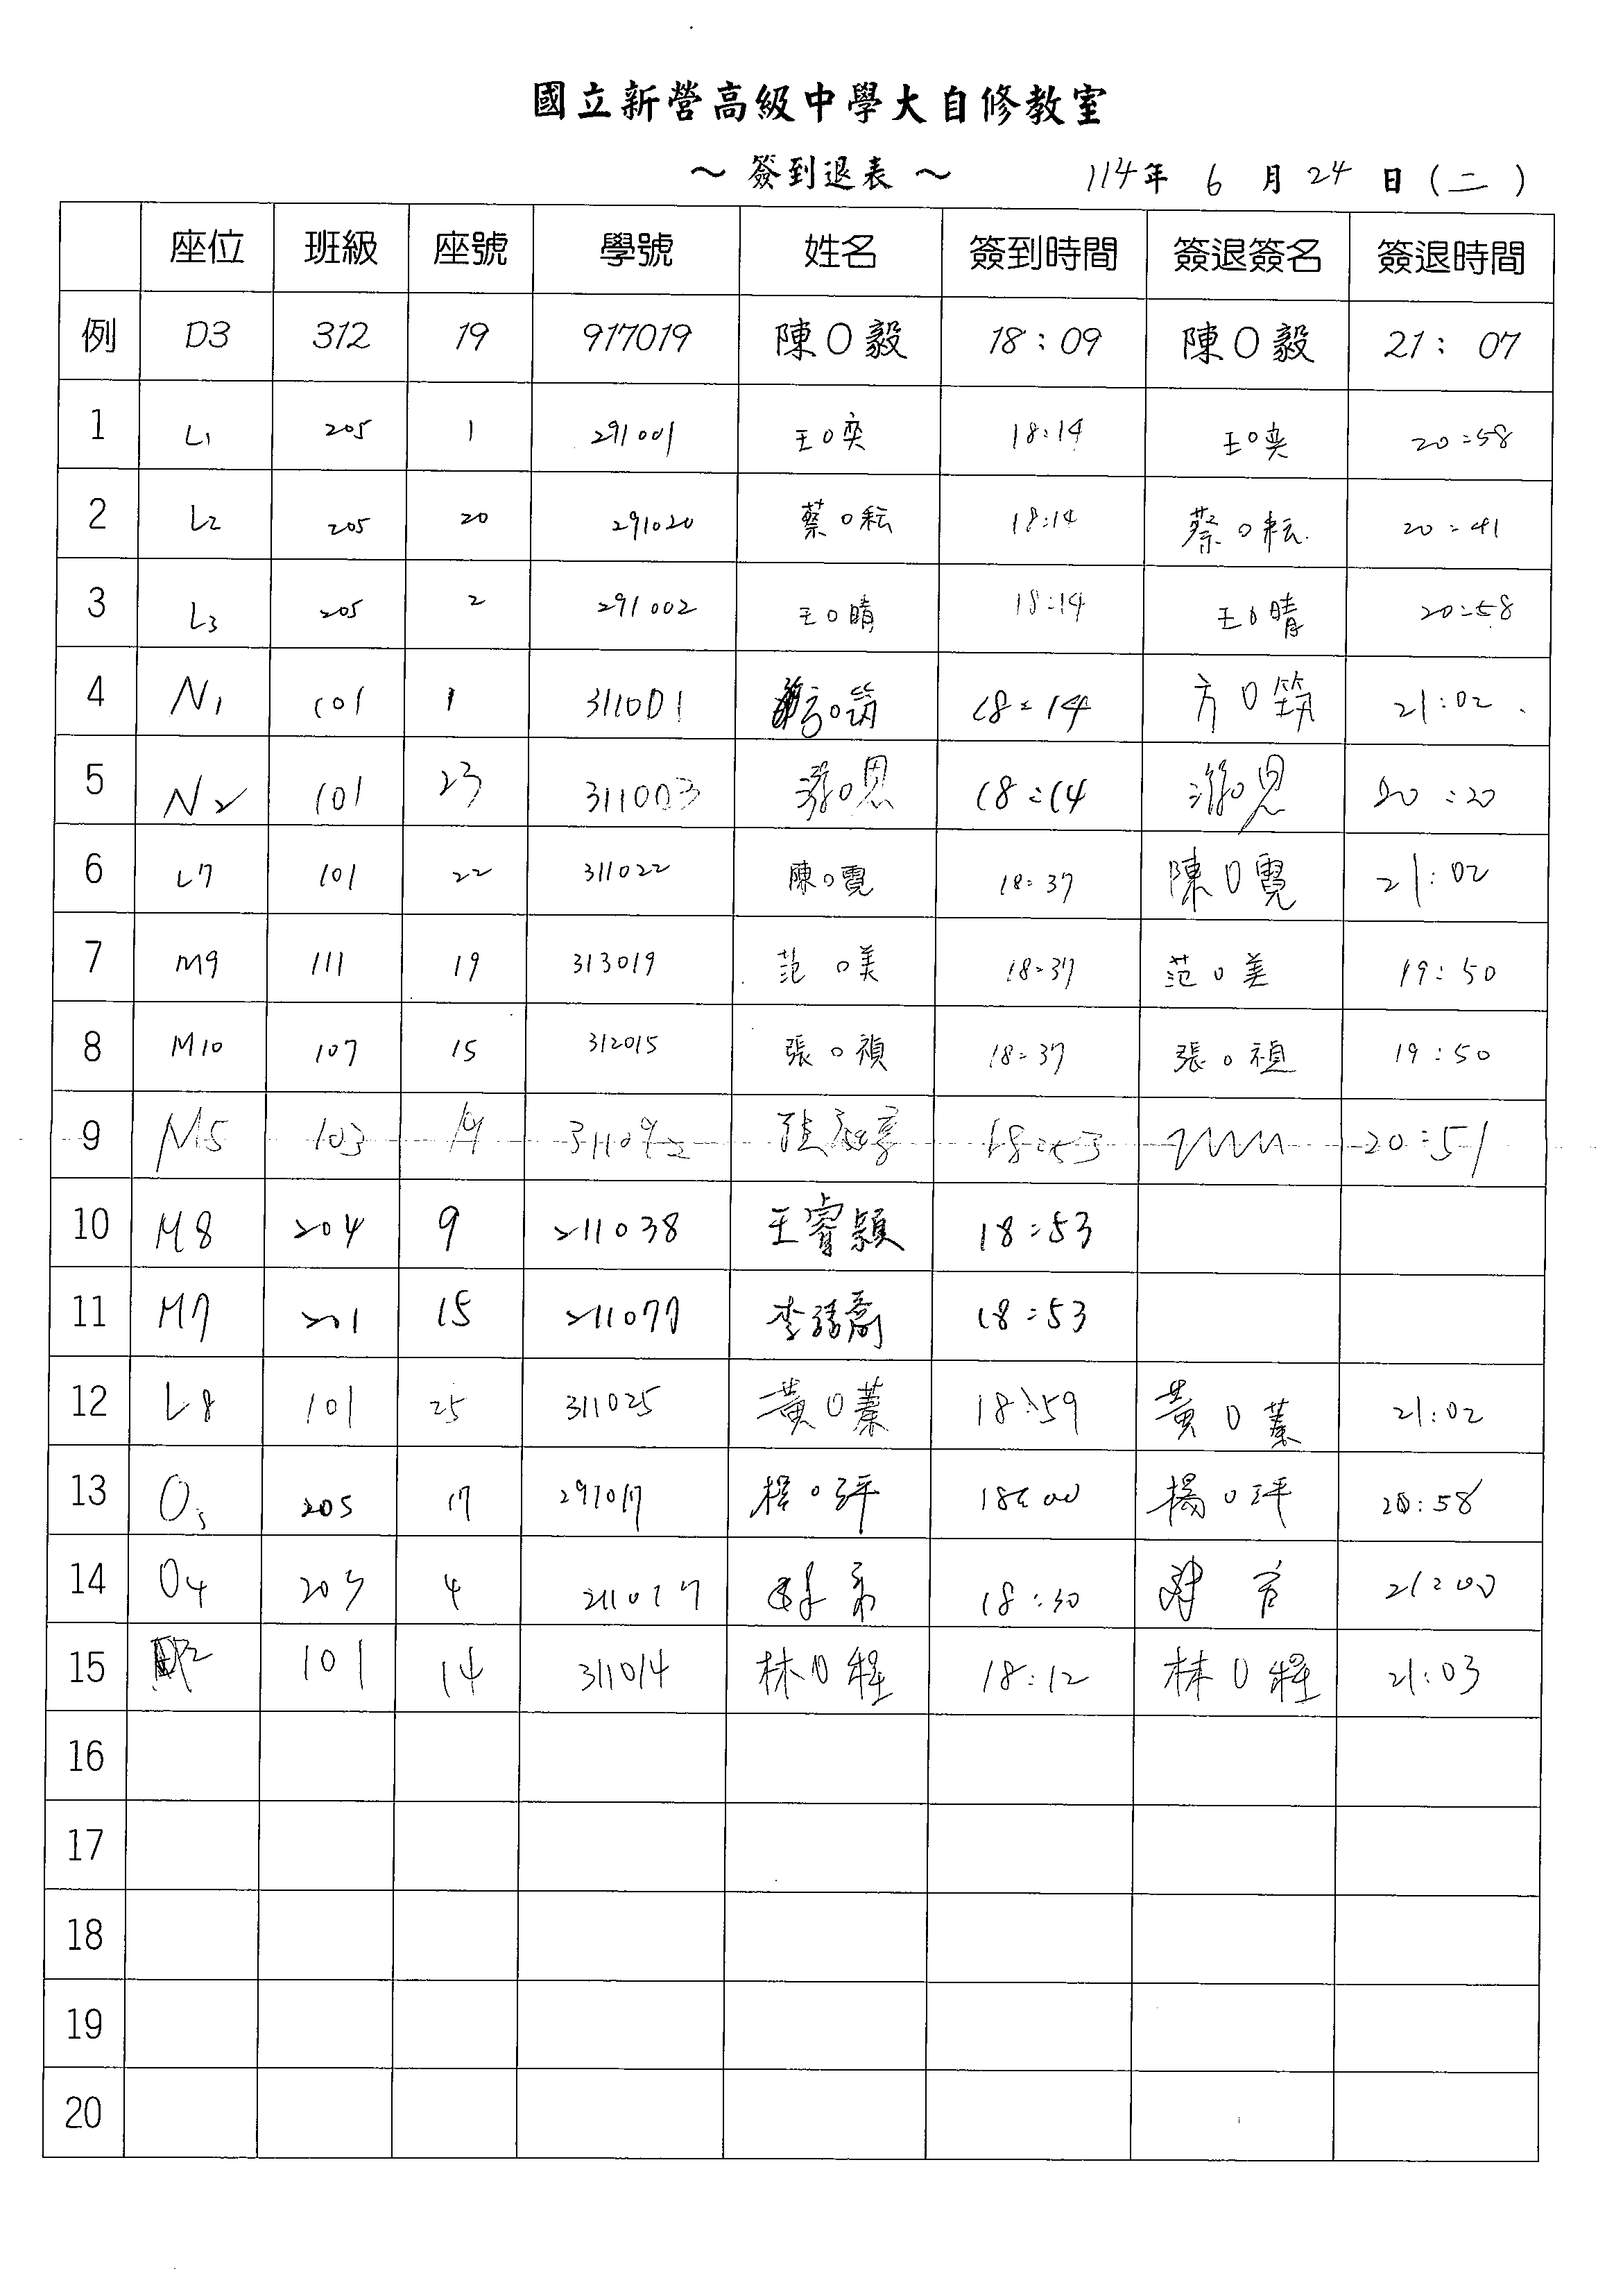 國立新營高級中學大自修教室
～ 簽到退表 ～ 114年 6 月 24 日(二)
座位 班級 座號 學號 姓名 簽到時間 簽退簽名 簽退時間
例 D3 312 19 917019 陳O毅 18:09 陳O毅 21:07
1 L1 205 1 291001 王O奕 18:14 王O奕 20:58
2 L2 205 20 291020 蔡O耘 18:14 蔡O耘 20:41
3 L3 205 2 291002 王O晴 18:14 王O晴 20:58
4 N1 101 1 311001 方O筑 18:14 方O筑 21:02
5 N2 101 23 311003 游O恩 18:14 游O恩 20:20
6 L7 101 22 311022 陳O霓 18:37 陳O霓 21:02
7 M9 111 19 313019 范O美 18:37 范O美 19:50
8 M10 107 15 312015 張O禎 18:37 張O禎 19:50
9 M5 103 19 18:53 20:51
10 M8 204 9 211038 王睿穎 18:53
11 M7 201 15 211077 李 18:53
12 L8 101 25 311025 黃O蓁 18:59 黃O蓁 21:02
13 O3 205 17 291017 楊O坪 18:00 楊O坪 20:58
14 O4 203 4 211017 18:30 21:00
15 101 14 311014 林O程 18:12 林O程 21:03
16
17
18
19
20